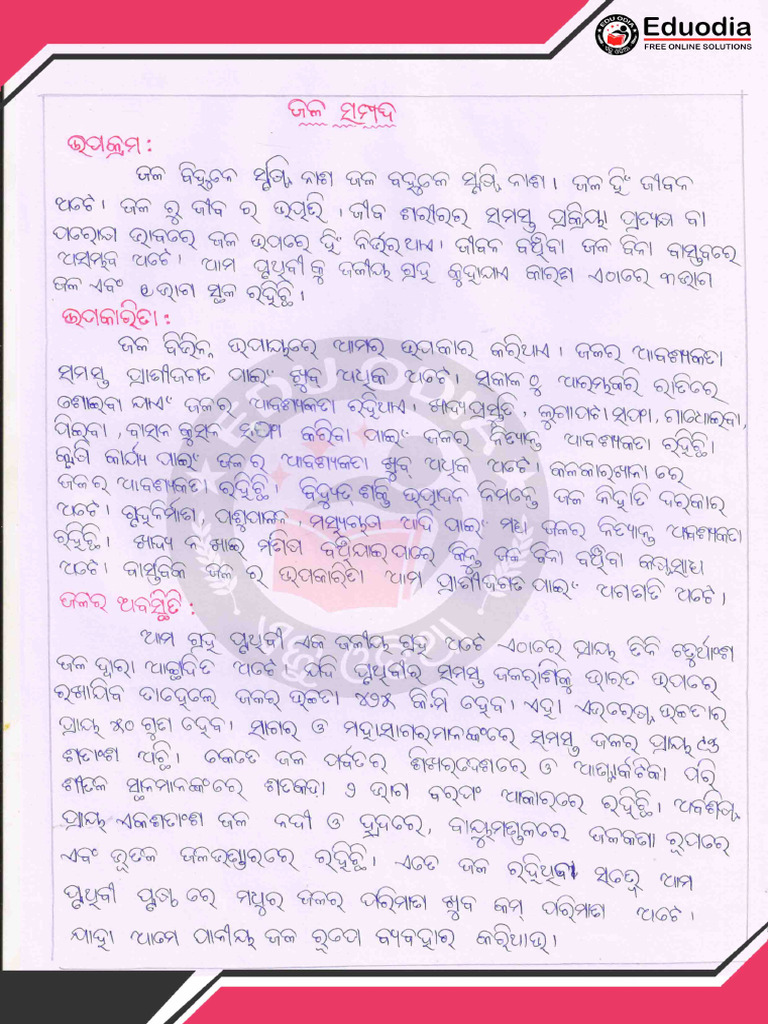 Eduodia
FREE ONLINE SOLUTIONS
ଜଳ ସମ୍ପଦ
ଉପକ୍ରମ :
ଜଳ ବିହୁନେ ସୃଷ୍ଟି ନାଶ ଜଳ ବହୁଳେ ସୃଷ୍ଟି ନାଶ । ଜଳ ହିଁ ଜୀବନ
ଅଟେ । ଜଳ ରୁ ଜୀବ ର ଉତ୍ପତ୍ତି । ଜୀବ ଶରୀରର ସମସ୍ତ ପ୍ରକ୍ରିୟା ପ୍ରତ୍ୟକ୍ଷ ବା
ପରୋକ୍ଷ ଭାବରେ ଜଳ ଉପରେ ହିଁ ନିର୍ଭର ଥାଏ । ଜୀବନ ବଞ୍ଚିବା ଜଳ ବିନା ବାସ୍ତବରେ
ଅସମ୍ଭବ ଅଟେ । ଆମ ପୃଥିବୀ କୁ ଜଳୀୟ ଗ୍ରହ କୁହାଯାଏ କାରଣ ଏଠାରେ ୩ ଭାଗ
ଜଳ ଏବଂ ୧ ଭାଗ ସ୍ଥଳ ରହିଛି ।
ଉପକାରିତା :
ଜଳ ବିଭିନ୍ନ ଉପାୟରେ ଆମର ଉପକାର କରିଥାଏ । ଜଳର ଆବଶ୍ୟକତା
ସମସ୍ତ ପ୍ରାଣୀଜଗତ ପାଇଂ ଖୁବ ଅଧିକ ଅଟେ । ସକାଳ ଠୁ ଆରମ୍ଭକରି ରାତିରେ
ଶୋଇବା ଯାଏଂ ଜଳର ଆବଶ୍ୟକତା ରହିଥାଏ । ଖାଦ୍ୟ ପ୍ରସ୍ତୁତି, ଲୁଗାପଟା ସଫା, ଗାଧୋଇବା,
ପିଇବା, ବାସନ କୁସନ ସଫା କରିବା ପାଇଂ ଜଳର ନିତ୍ୟାନ୍ତ ଆବଶ୍ୟକତା ରହିଛି ।
କୃଷି କାର୍ଯ୍ୟ ପାଇଂ ଜଳ ର ଆବଶ୍ୟକତା ଖୁବ ଅଧିକ ଅଟେ । କଳକାରଖାନା ରେ
ଜଳ ର ଆବଶ୍ୟକତା ରହିଛି । ବିଦ୍ୟୁତ୍ ଶକ୍ତି ଉତ୍ପାଦନ ନିମନ୍ତେ ଜଳ ନିହାତି ଦରକାର
ଅଟେ । ଗୃହନିର୍ମାଣ, ପଶୁପାଳନ, ମତ୍ସ୍ୟଚାଷ ଆଦି ପାଇଂ ମଧ୍ୟ ଜଳର ନିତ୍ୟାନ୍ତ ଆବଶ୍ୟକତା
ରହିଛି । ଖାଦ୍ୟ ନ ଖାଇ ମଣିଷ ବଞ୍ଚିଯାଇ ପାରେ କିନ୍ତୁ ଜଳ ବିନା ବଞ୍ଚିବା କଷ୍ଟସାଧ୍ୟ
ଅଟେ । ବାସ୍ତବିକ ଜଳ ର ଉପକାରିତା ଆମ ପ୍ରାଣୀଜଗତ ପାଇଂ ଅଗଣତି ଅଟେ ।
ଜଳର ଅବସ୍ଥିତି :
ଆମ ଗ୍ରହ ପୃଥିବୀ ଏକ ଜଳୀୟ ଗ୍ରହ ଅଟେ ଏଠାରେ ପ୍ରାୟ ତିନି ଚତୁର୍ଥାଂଶ
ଜଳ ଦ୍ୱାରା ଆଚ୍ଛାଦିତ ଅଟେ । ଯଦି ପୃଥିବୀର ସମସ୍ତ ଜଳରାଶିକୁ ଭାରତ ଉପରେ
ରଖାଯିବ ତାହେଲେ ଜଳର ଉଚ୍ଚତା ୪୨୫ କି.ମି ହେବ । ଏହା ଏଭରେଷ୍ଟ ଉଚ୍ଚତାର
ପ୍ରାୟ ୫୦ ଗୁଣ ହେବ । ସାଗର ଓ ମହାସାଗରମାନଙ୍କରେ ସମସ୍ତ ଜଳର ପ୍ରାୟ ୯୭
ଶତାଂଶ ଅଛି । କେତେ ଜଳ ପର୍ବତର ଶିଖରଦେଶରେ ଓ ଆଣ୍ଟାର୍କଟିକା ପରି
ଶୀତଳ ସ୍ଥାନମାନଙ୍କରେ ଶତକଡ଼ା ୨ ଭାଗ ବରଫ ଆକାରରେ ରହିଛି । ଅବଶିଷ୍ଟ
ପ୍ରାୟ ଏକଶତାଂଶ ଜଳ ନଦୀ ଓ ହ୍ରଦରେ, ବାୟୁମଣ୍ଡଳରେ ଜଳକଣା ରୂପରେ
ଏବଂ ଭୂତଳ ଜଳଭଣ୍ଡାରରେ ରହିଛି । ଏତେ ଜଳ ରହିଥିବା ସତ୍ତ୍ୱେ ଆମ
ପୃଥିବୀ ପୃଷ୍ଠ ରେ ମଧୁର ଜଳର ପରିମାଣ ଖୁବ କମ୍ ପରିମାଣ ଅଟେ ।
ଯାହା ଆମେ ପାନୀୟ ଜଳ ରୂପେ ବ୍ୟବହାର କରିଥାଉ ।